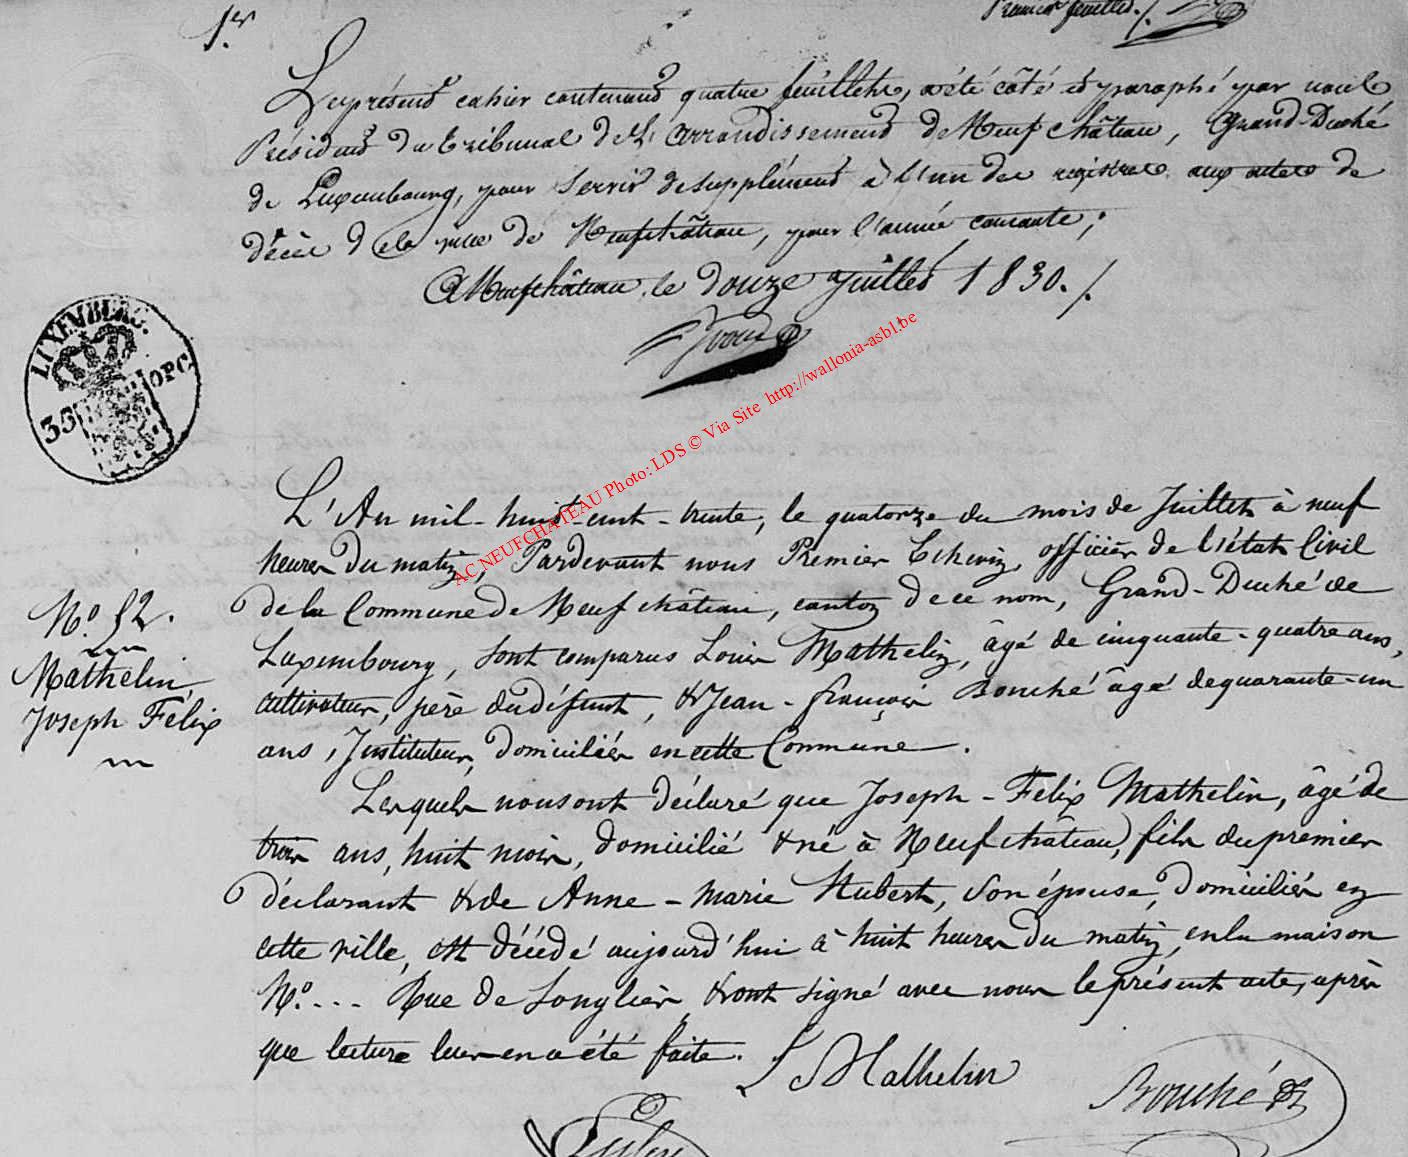 1er
Premier feuillet./.
Le présent cahier contenant quatre feuillets, a été côté et paraphé par nous
Président du tribunal de l'arrondissement de Neufchâteau, Grand-Duché
de Luxembourg, pour servir de supplément à l'un des registres aux actes de
décès de la ville de Neufchâteau, pour l'année courante;
A Neufchâteau, le douze Juillet 1830./.
LUXEMBERG.
35 OPC
AC NEUFCHATEAU Photo: LDS © Via Site http://wallonia-asbl.be
L'An mil-huit-cent-trente, le quatorze du mois de Juillet à neuf
heures du matin, Pardevant nous Premier Echevin, officier de l'état Civil
de la Commune de Neufchâteau, canton de ce nom, Grand-Duché de
Luxembourg, sont comparus Louis Mathelin, âgé de cinquante-quatre ans,
cultivateur, père du défunt, & Jean-françois Bouché âgé de quarante-un
ans, Instituteur, domiciliés en cette Commune.
No. 52.
Mathelin
Joseph Félix
Lesquels nous ont déclaré que Joseph-Félix Mathelin, âgé de
trois ans, huit mois, domicilié & né à Neufchâteau, fils du premier
déclarant & de Anne-Marie Hubert, son épouse, domiciliés en
cette ville, est décédé aujourd'hui à huit heures du matin, en la maison
No. --- Rue de Longlier, & ont signé avec nous le présent acte, après
que lecture leur en a été faite.
L Mathelin
Bouché